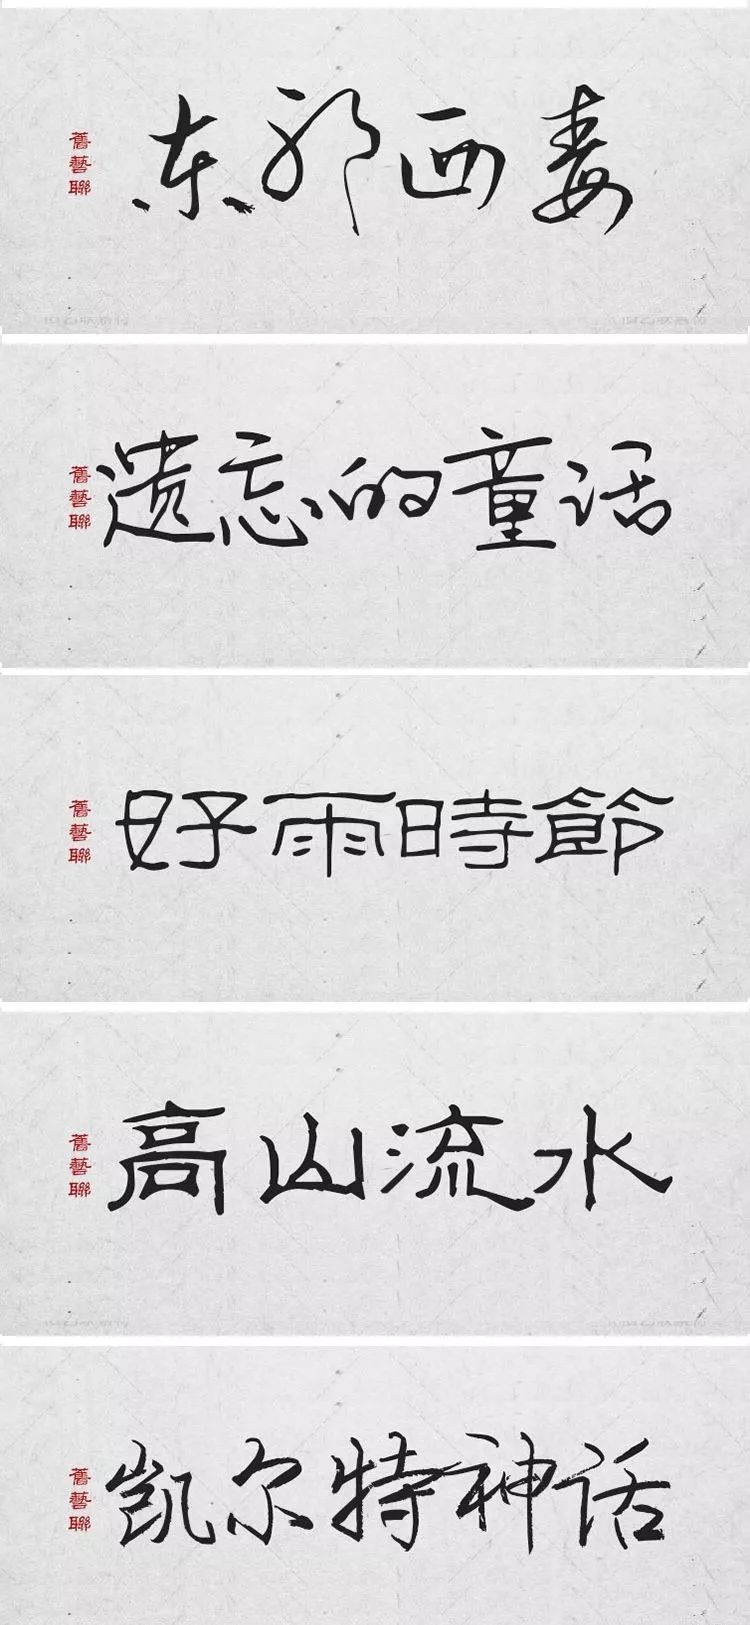 东邪西毒
舊藝聯
遗忘的童话
舊藝聯
好雨時節
舊藝聯
高山流水
舊藝聯
凯尔特神话
舊藝聯